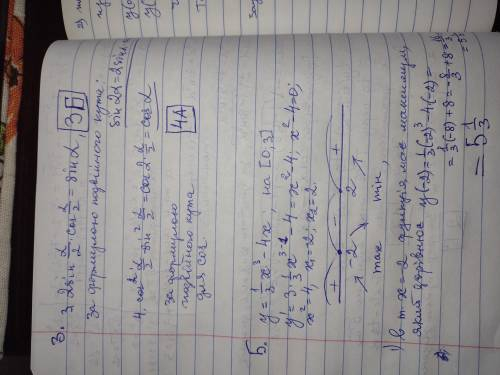 3.
3. 2sin α/2 · cos α/2 = sin α, 3Б
за формулою подвійного кута:
sin 2α = 2sin α
4. cos² α/2 - sin² α/2 = cos 2 · α/2 = cos α
4А
за формулою
подвійного кута
для cos
5. y = 1/3 x³ - 4x, на [0; 3]
y' = 3 · 1/3 x³⁻¹ - 4 = x² - 4; x² - 4 = 0;
x² = 4, x₁ = 2; x₂ = 2.
+ - +
-2 2
max min,
1) в т. x = -2 функція має максимум,
який дорівнює y(-2) = 1/3 (-2)³ - 4(-2) =
= 1/3 (-8) + 8 = -8/3 + 8 =
= 5 1/3